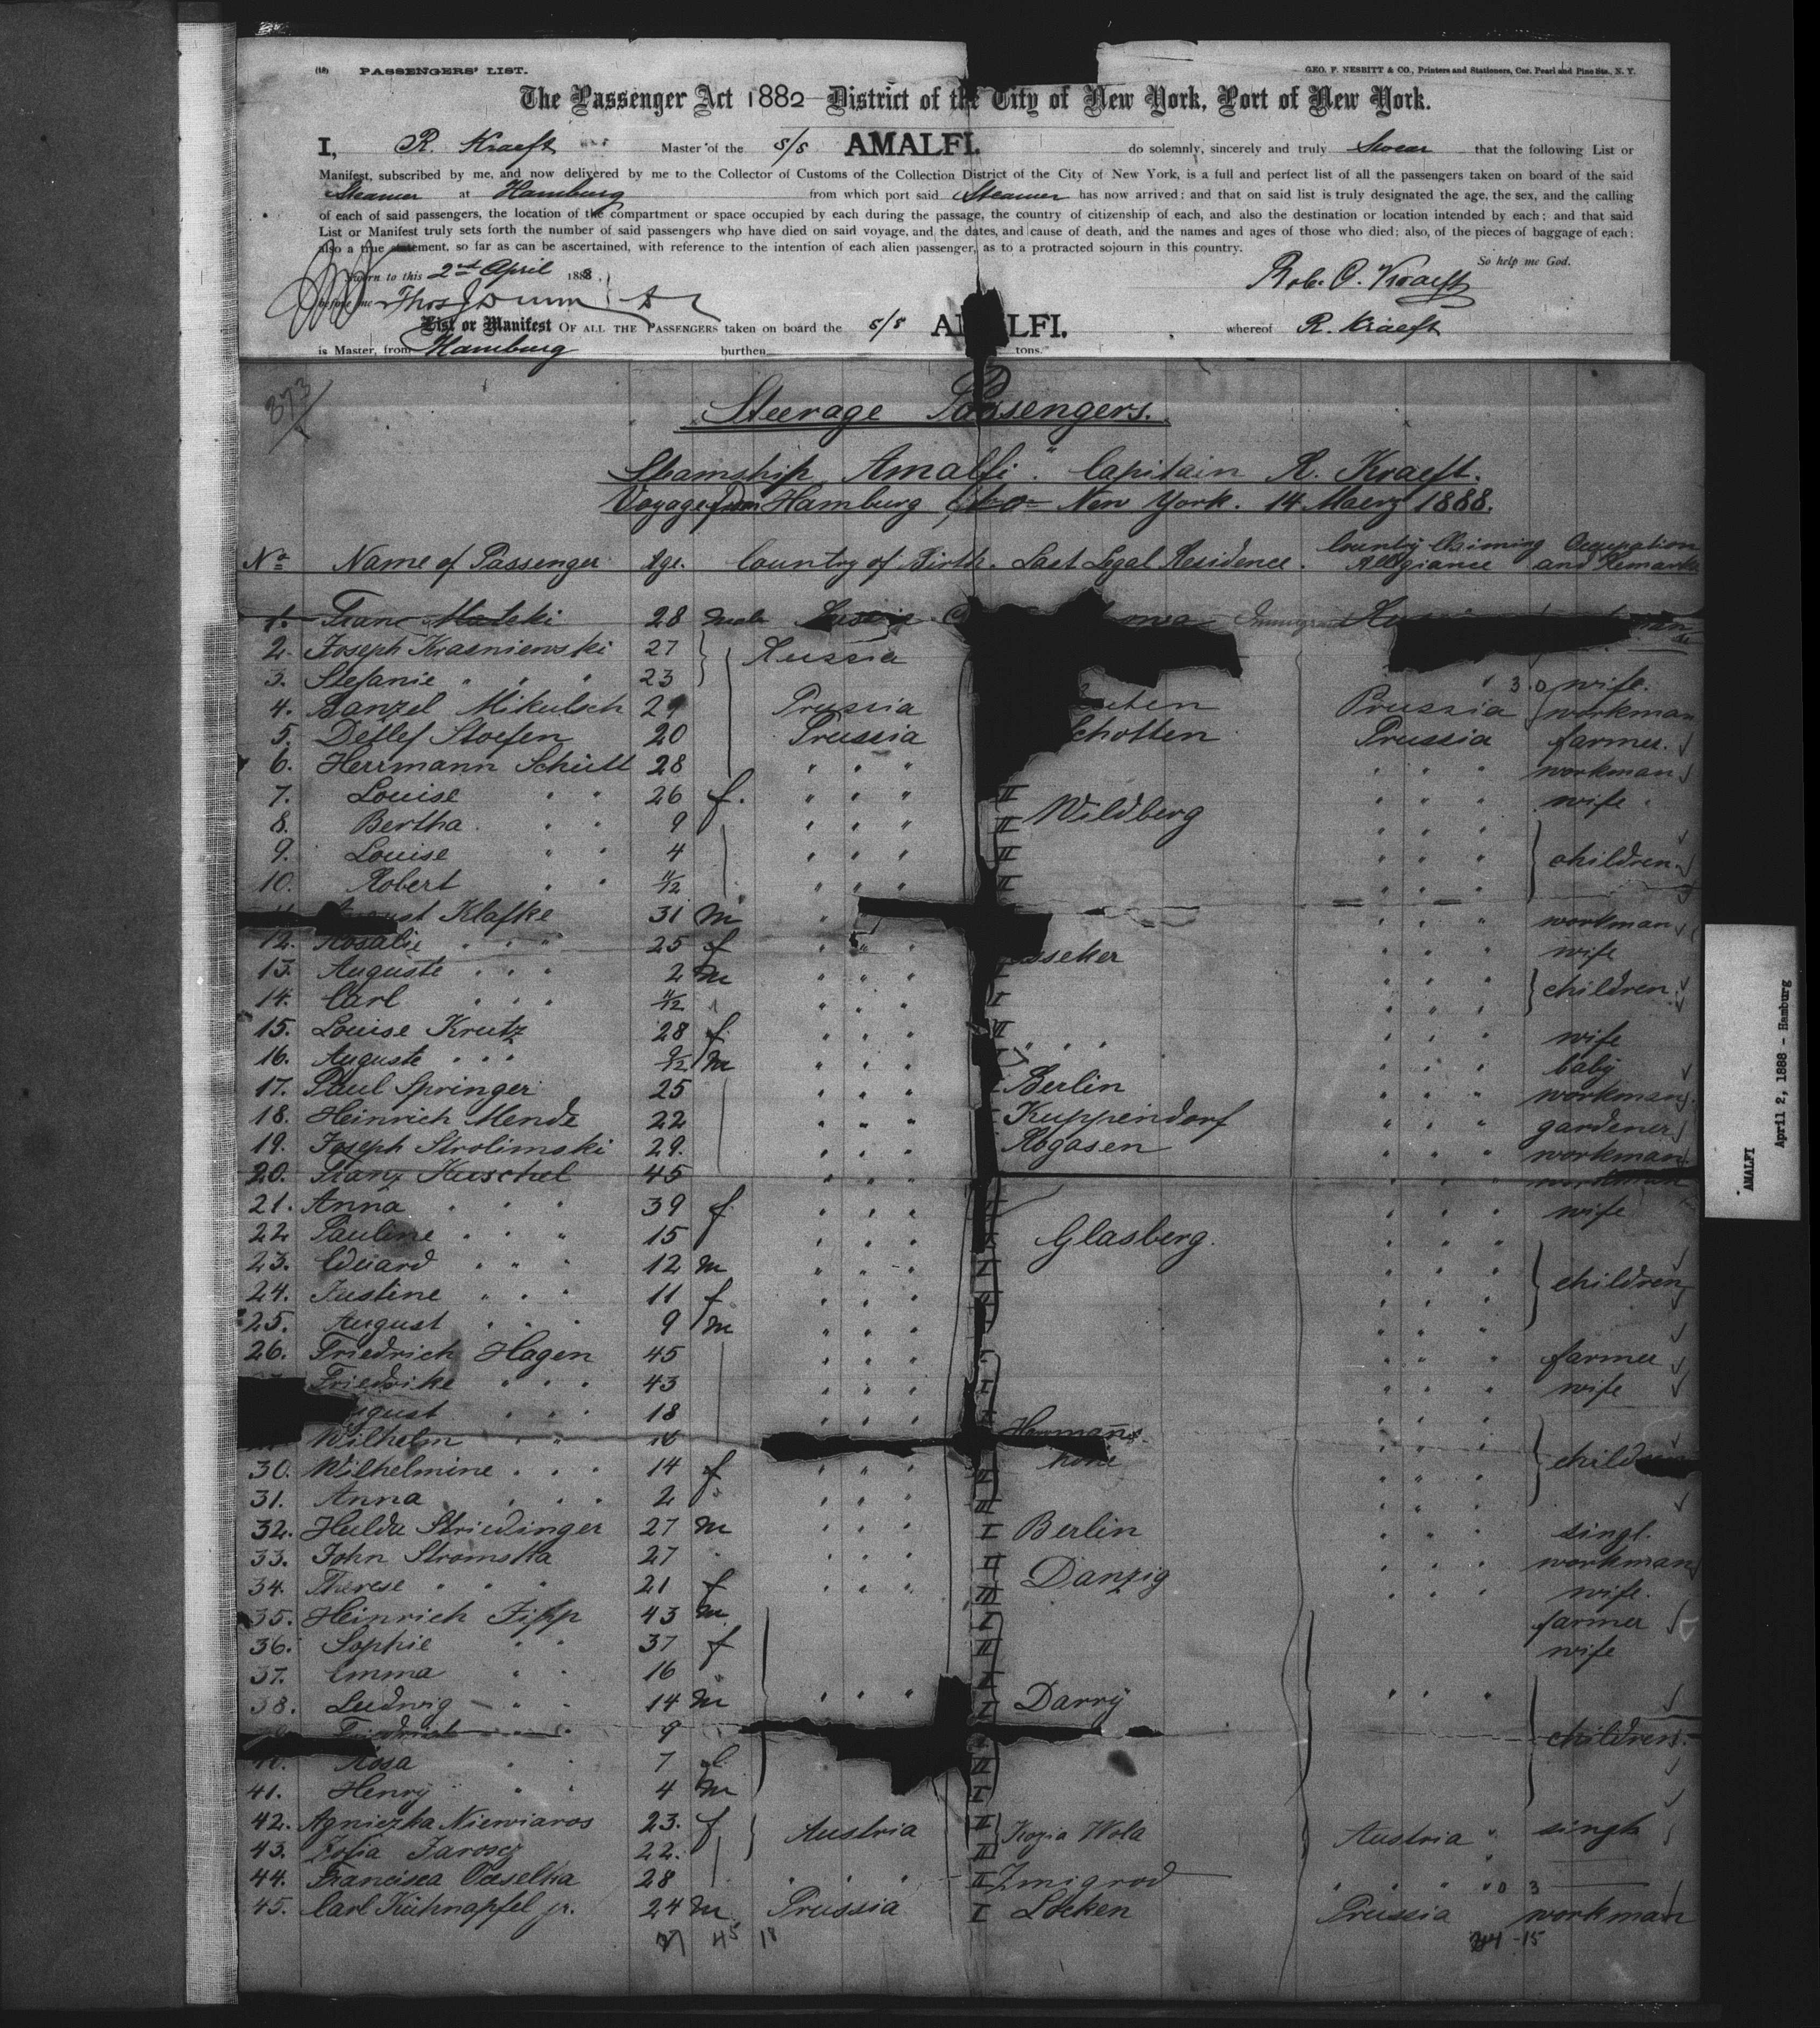 (18) PASSENGERS' LIST. GEO. F. NESBITT & CO., Printers and Stationers, Cor. Pearl and Pine Sts., N. Y.
The Passenger Act 1882 District of the City of New York, Port of New York.
I, R. Kraeft Master of the S/S AMALFI. do solemnly, sincerely and truly Swear that the following List or
Manifest, subscribed by me, and now delivered by me to the Collector of Customs of the Collection District of the City of New York, is a full and perfect list of all the passengers taken on board of the said
Steamer at Hamburg from which port said Steamer has now arrived; and that on said list is truly designated the age, the sex, and the calling
of each of said passengers, the location of the compartment or space occupied by each during the passage, the country of citizenship of each, and also the destination or location intended by each; and that said
List or Manifest truly sets forth the number of said passengers who have died on said voyage, and the dates, and cause of death, and the names and ages of those who died; also, of the pieces of baggage of each;
also a true statement, so far as can be ascertained, with reference to the intention of each alien passenger, as to a protracted sojourn in this country.
So help me God.
Sworn to this 2nd April 1888
before me Thos J Dunn Rob. O. Kraeft
List or Manifest OF ALL THE PASSENGERS taken on board the S/S AMALFI. whereof R. Kraeft
is Master, from Hamburg burthen tons.
373
Steerage Passengers.
Steamship "Amalfi" Capitain R. Kraeft.
Voyage from Hamburg to New York. 14 Maerz 1888.
No Name of Passenger Age. Country of Birth. Last Legal Residence. Country Claiming Allegiance Occupation and Remarks
1. Franc 28 male
2. Joseph Krasniewski 27 Russia
3. Stefanie " " 23 3.0 wife.
4. Banzel Mikulsch 29 Prussia Prussia workman
5. Detlef Stoefen 20 Prussia chotten Prussia farmer.
6. Herrmann Schütt 28 " " " " " " workman
7. Louise " " 26 f. " " " II Wildberg " " " wife
8. Bertha " " 9 " " " II " " "
9. Louise " " 4 " " " II " " " children
10. Robert " " 11/12 " " " II " " "
August Klafke 31 m " " " " workman
12. Rosalie " " " 25 f " " " sseker " " " wife
13. Auguste " " " 2 m " " " I " " " children
14. Carl " " " 11/12 " " " I " " "
15. Louise Krutz 28 f " " " VI " " " " " " wife
16. Auguste " " " 9/12 m " " " " " " baby
17. Paul Springer 25 " " " Berlin " " " workman
18. Heinrich Mende 22 " " " Kuppendorf " " " gardener
19. Joseph Strolimski 29. " " " Rogasen " " " workman
20. Franz Kuschel 45 " " " " " " workman
21. Anna " " " 39 f " " " " " " wife
22 Pauline " " " 15 " " " Glasberg. " " "
23. Eduard " " " 12 m " " " I " " "
24. Justine " " " 11 f " " " II " " " children
25. August " " " 9 m " " " " " "
26. Friedrich Hagen 45 " " " I " " " farmer
Friedrike " " " 43 " " " I " " " wife
August " " " 18 " " " I " " "
Wilhelm " " 16 " " "
30. Wilhelmine " " " 14 f " " " II " " " children
31. Anna " " " 2 " " " " II " " "
32. Hulda Striedinger 27 m " " " I Berlin " " " singl.
33. John Stromska 27 " " " " II Danzig " " " workman
34. Therese " " " 21 f " " " II " " " wife.
35. Heinrich Fipp 43 m I farmer
36. Sophie " " 37 f II wife
37. Emma " " 16 " II
38. Ludwig " " 14 m " " " I Darry " " "
Friedrich " " 9 children.
40. Rosa " " 7 f II
41. Henry " " 4 m I
42. Agnieszka Niewiaros 23. f Austria II Kozia Wola Austria " singl.
43. Zofia Jarosz 22. II "
44. Francisca 28 " " " II Zmigrod " " " " 0 3
45. Carl Kühnapfel jr. 24 m Prussia I Locken Prussia workman
45 18 44-15
AMALFI
April 2, 1888 - Hamburg